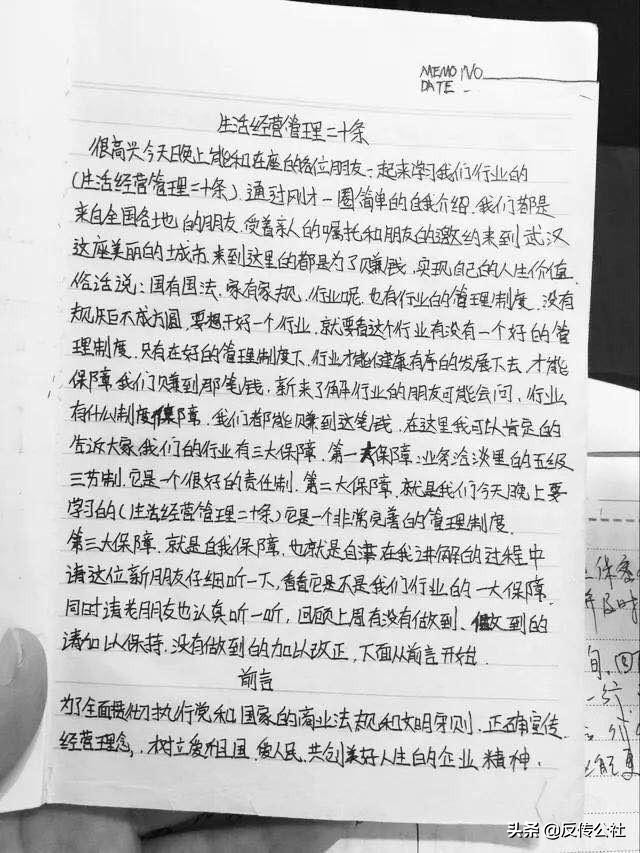 MEMO NO
DATE
生活经营管理二十条
很高兴今天晚上能和在座的各位朋友一起来学习我们行业的
(生活经营管理二十条).通过刚才一圈简单的自我介绍.我们都是
来自全国各地的朋友.受着亲人的嘱托和朋友的邀约来到武汉
这座美丽的城市.来到这里的都是为了赚钱.实现自己的人生价值.
俗话说:国有国法,家有家规,行业呢.也有行业的管理制度.没有
规矩不成方圆.要想干好一个行业,就要看这个行业有没有一个好的管
理制度.只有在好的管理制度下.行业才能健康有序的发展下去.才能
保障我们赚到那笔钱.新来了解行业的朋友可能会问,行业
有什么制度保障.我们都能赚到这笔钱.在这里我可以肯定的
告诉大家.我们的行业有三大保障.第一大保障:业务洽谈里的五级
三节制.它是一个很好的责任制.第二大保障.就是我们今天晚上要
学习的(生活经营管理二十条)它是一个非常完善的管理制度.
第三大保障.就是自我保障,也就是自律在我讲解的过程中
请这位新朋友仔细听一下,看看它是不是我们行业的一大保障.
同时请老朋友也认真听一听,回顾上周有没有做到、做到的
请加以保持.没有做到的加以改正,下面从前言开始.
前言
为了全面贯彻执行党和国家的商业法规和文明守则.正确宣传
经营理念,.树立爱祖国.爱人民.共创美好人生的企业精神.
头条 @反传公社